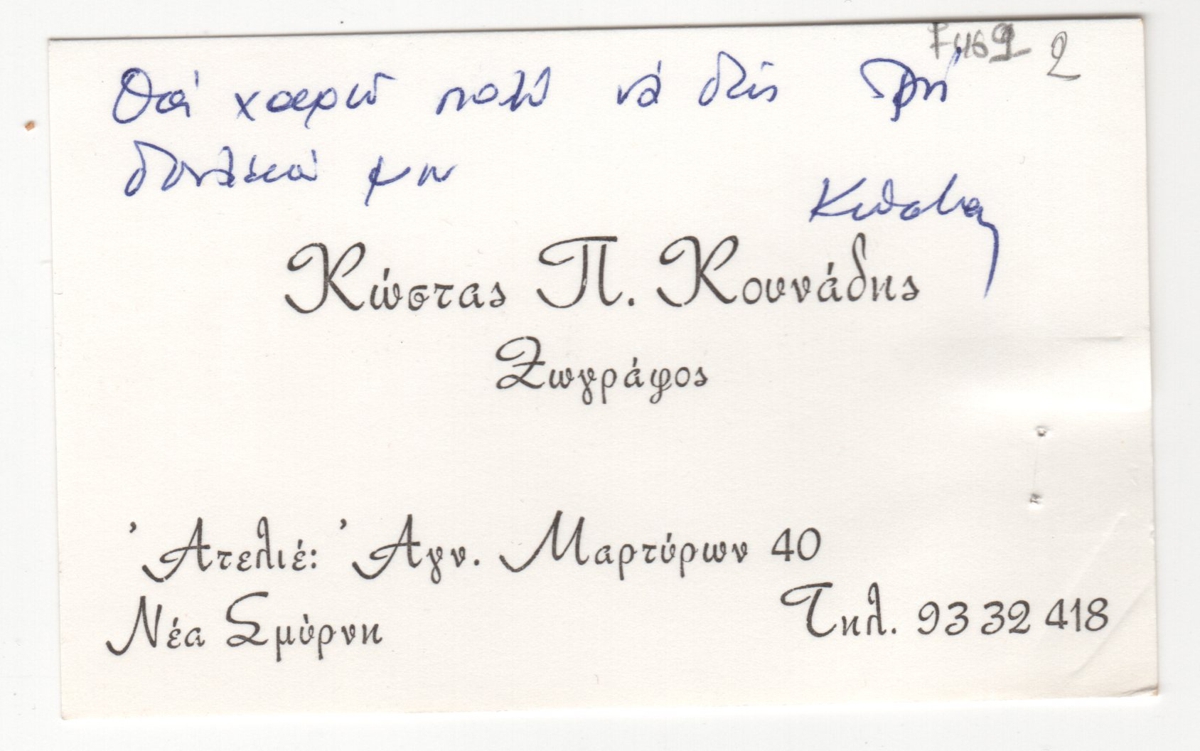 2
Θά χαρῶ πολύ νά δεῖς τή
δουλειά μου
Κώστας
Κώστας Π. Κουνάδης
Ζωγράφος
Ἀτελιέ: Ἀγν. Μαρτύρων 40
Νέα Σμύρνη
Τηλ. 93 32 418